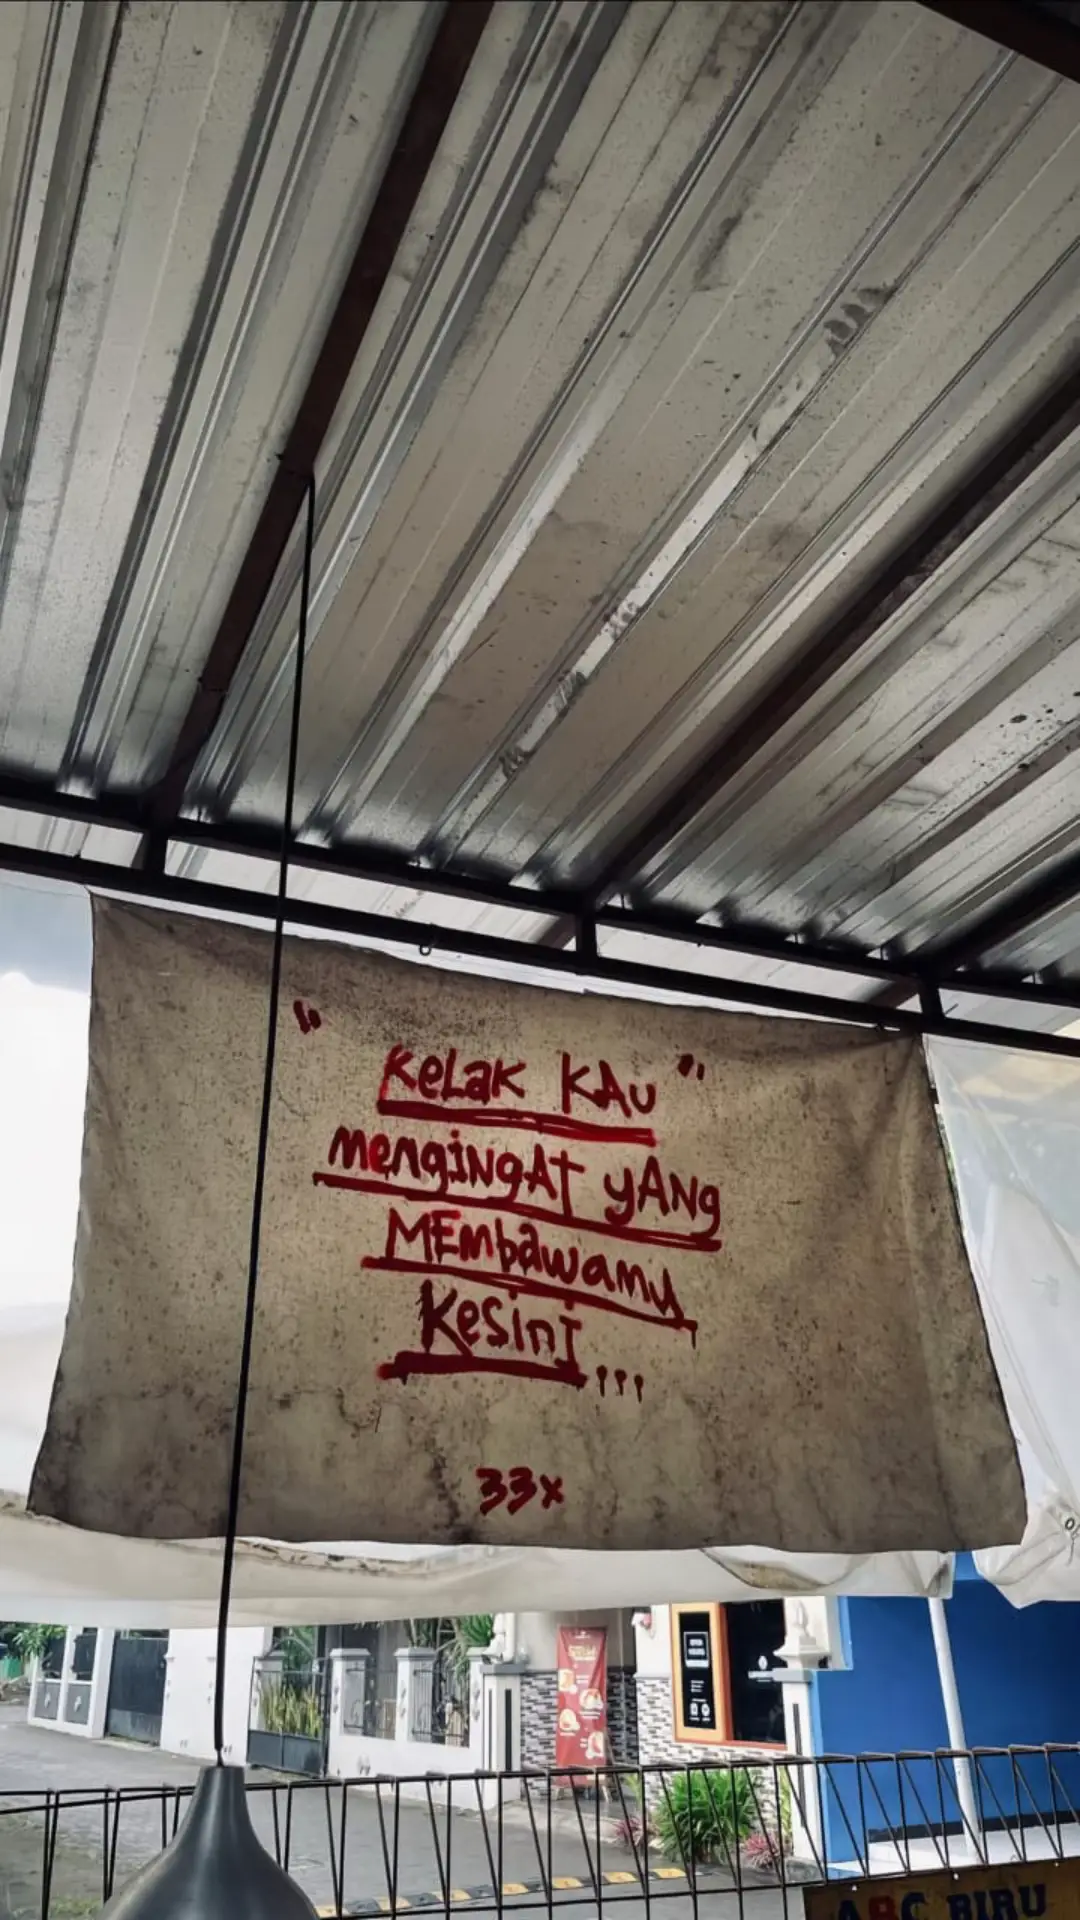 " KeLaK KAu "
mengiNgAt yANg
MEmbawamu
KesinI ...
33x
ABC BIRU